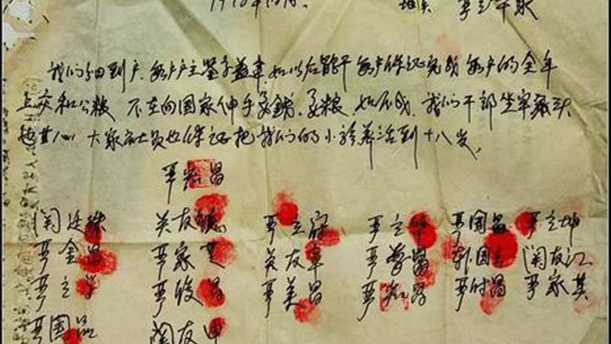 1978年12月 地点 严立华家
我们分田到户 每户户主签字盖章 如以后能干 每户保证完成每户的全年
上交和公粮 不在向国家伸手要钱、要粮 如不成、我们干部坐牢杀头
也甘心、大家社员也保证把我们的小孩养活到十八岁、
严宏昌
关廷珠 关友德 严立符 严立华 严国昌 严立坤
严金昌 严家芝 关友章 严学昌 韩国云 关友江
严立学 严俊昌 严美昌 严宏昌 严付昌 严家其
严国品 关友申